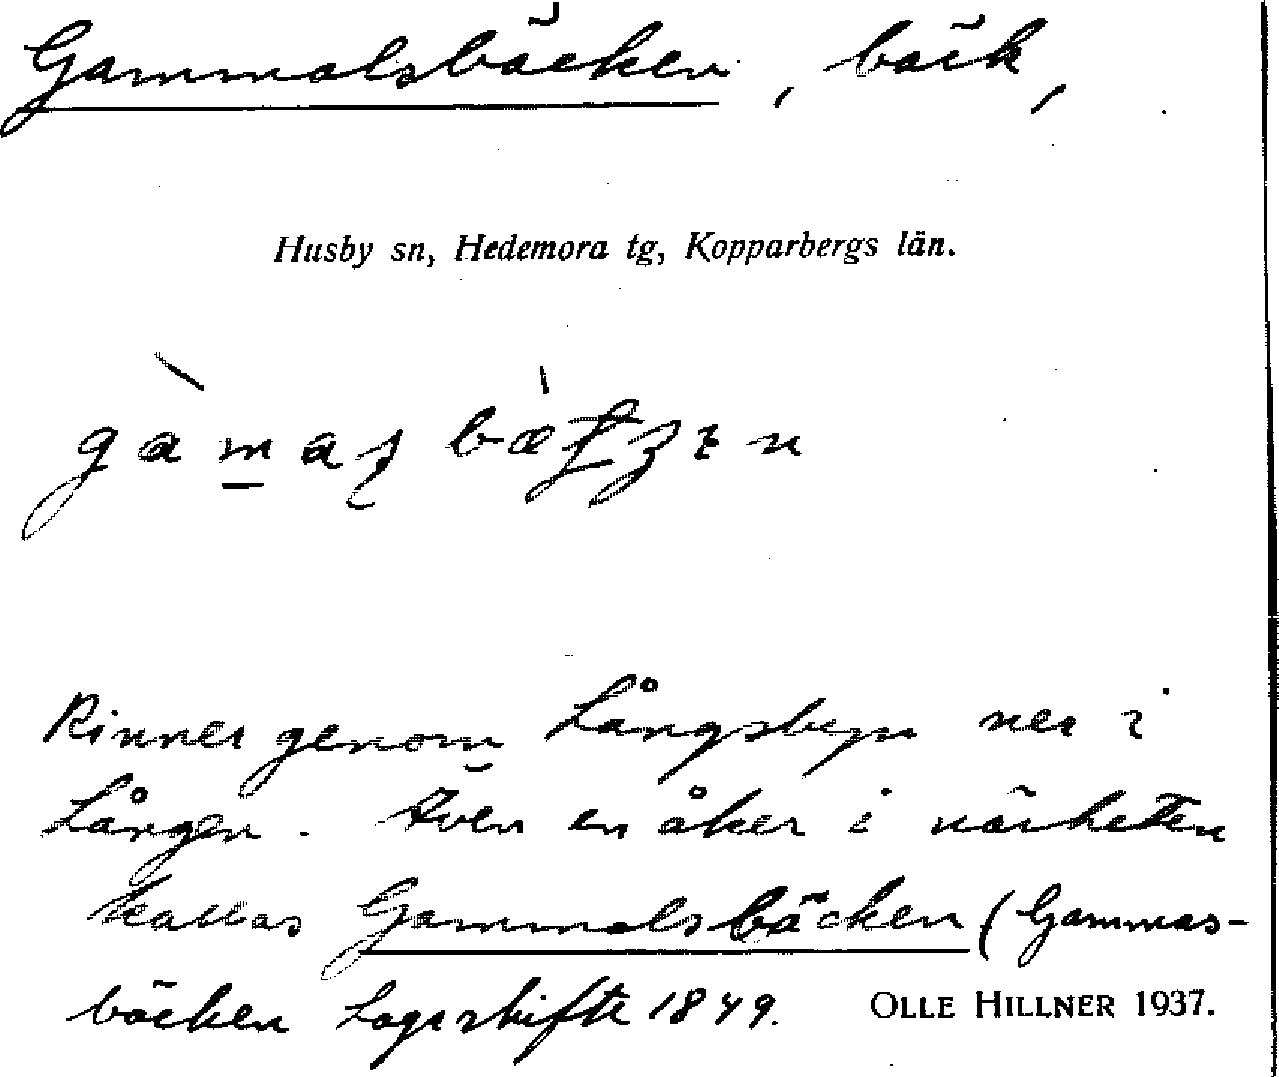 Gammalsbäcken, bäck,
Husby sn, Hedemora tg, Kopparbergs län.
Rinner genom Långsbyn ner i
Lången. Även en åker i närheten
kallas Gammalsbäcken (Gammas-
bäcken Laga skifte 1849.
OLLE HILLNER 1937.